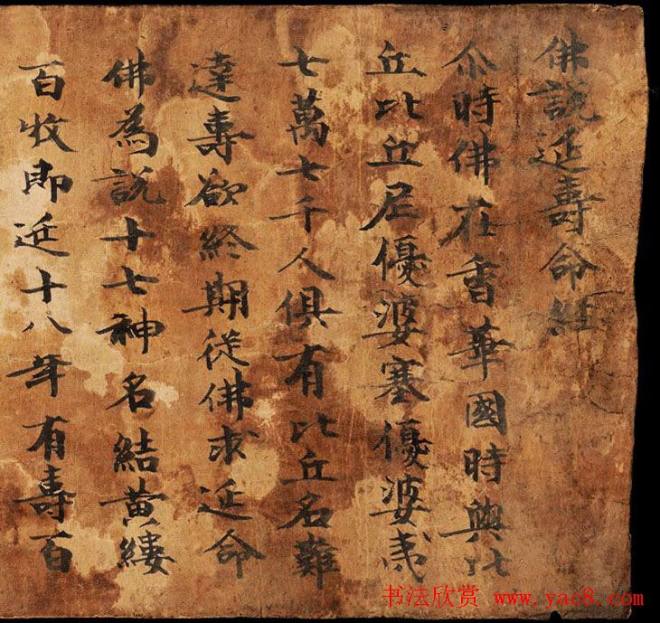 佛説延壽命經
尒時佛在香華國時與比
丘比丘尼優婆塞優婆夷
七萬七千人俱有比丘名難
達壽欲終期從佛求延命
佛為説十七神名結黃縷
百收即延十八年有壽百
书法欣赏 www.yac8.com